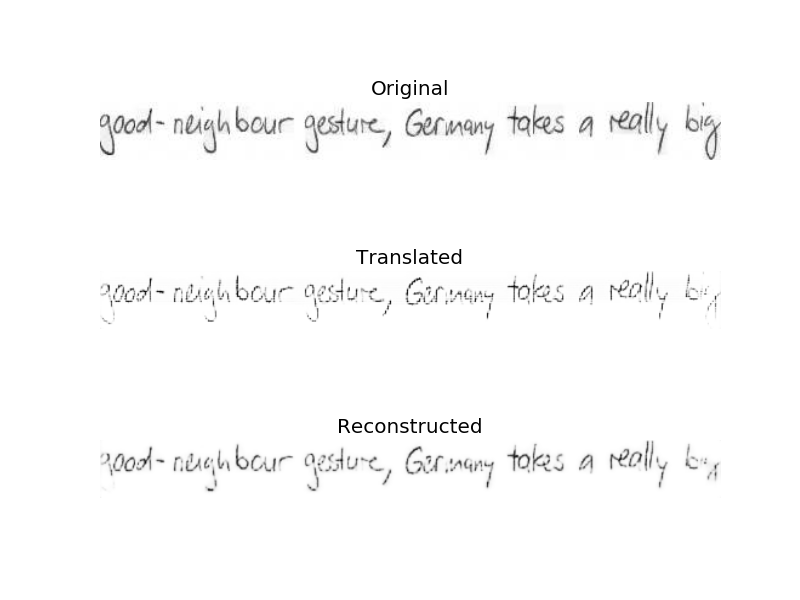 Original
good-neighbour gesture, Germany takes a really big
Translated
good-neighbour gesture, Germany takes a really big
Reconstructed
good-neighbour gesture, Germany takes a really